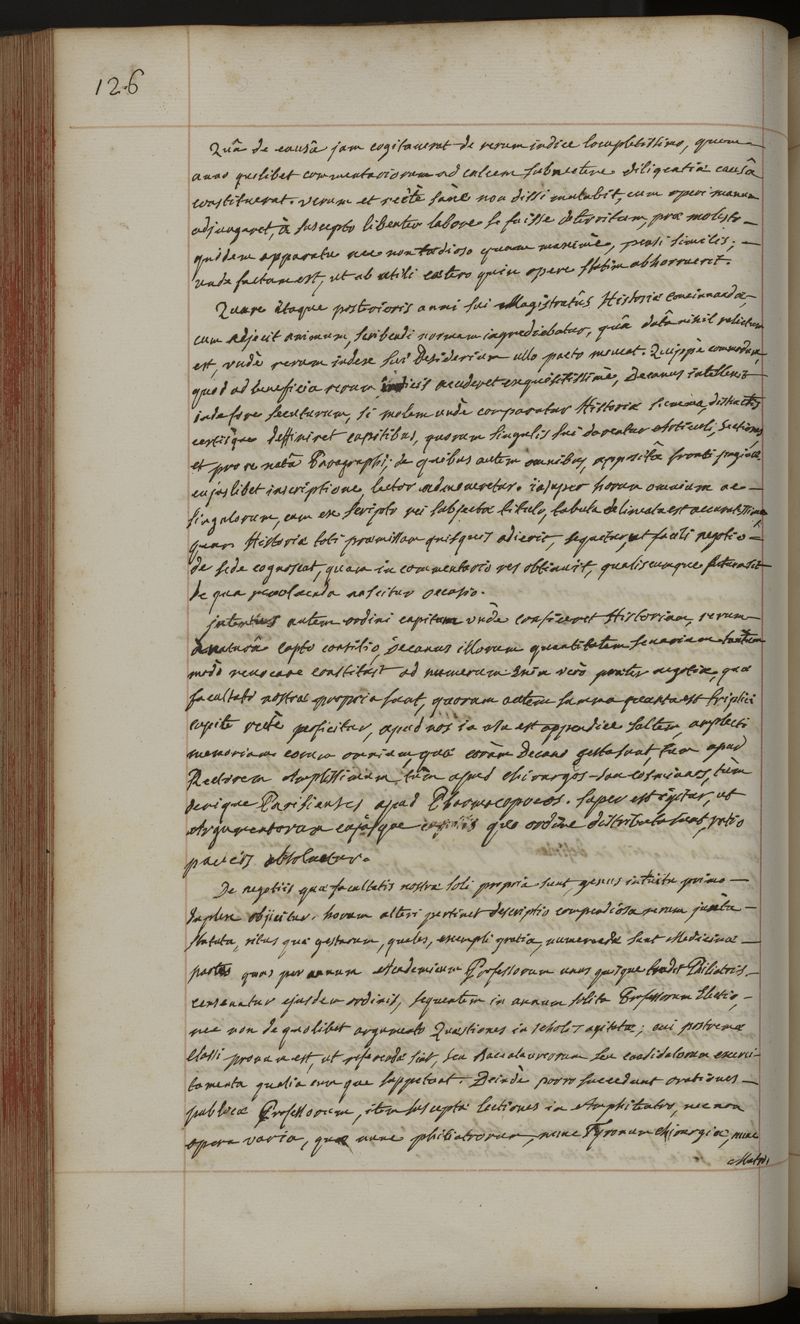 126
Quâ de causâ jam cogitaverat de rerum indice locupletissimo, quem
anno quolibet commentariorum ad calcem subnectere diligentiæ causâ
constituerat. verum et rectè sanè non dissimulabit, cum operi manum
adjungeret, à suscepto libenter labore se fuisse deterritum, præ molesto
quidem apparatu nec non tædioso quam maximè, pensi similis;
unde factum est, ut ab utili cætero quin opere statim abhorruerit.
Quare itaque posterioris anni sui Magistratûs Historiæ concinnandæ
cum adjecit animum, scribendi normam ingrediebatur, quâ datâ nihil relictum
est, undè rerum index sui Desiderium ullo pacto moveat. Quippè commodum,
quod ad beneficia rerum indicis accederet exquisitissimè, Decanus intellexit
inde fore secuturum, si molem undè comparatur Historia summa, distinctis
certisque deffiniret capitibus, quorum singulis sui darentur Articuli, Sectiones,
et pro re natâ Paragraphi; de quibus autem omnibus, appositâ fronti paginæ
cujuslibet inscriptione, lector admoneretur. insuper horum omnium ac
singulorum, cum ex scripto rei subjectæ titulo, tabula delineata est accuratissima,
quam Historiæ toti præmissam quisquis adierit, sequetur, ut facili negotio
de sede cognoscat, quam in commentario res obtinuit, qualiscumque futura sit
de qua revolvenda nascitur occasio.
intentus autem ordini capitum undè conficeret Historiam, rerum
a naturâ capto consilio, Decanus illorum quantitatem senarium tantum
modo revocare constituit ad numerum. Quin verò præter negotia, quæ
facultati nostræ propria sunt, quorum autem summa quanta est triplici
capite rectè perficitur, apud nos in usu est appendice saltem, amplecti
memoriam eorum omnium, quæ coràm Decano gesta sunt, tum apud
Rectorem Amplissimum, tùm apud chirurgos San cosmianos, tùm
denique Parisienses apud Pharmacopæos. super est igitur, ut
Argumentorum cujusque capitis quo ordine distributa sunt, ratio
paucis absolvatur.
De negotiis quæ facultatis nostræ soli propria sunt, genus intuitu primo
duplex objicitur. horum alteri pertinet descriptio compendiosa rerum juxta
statuta, ritus quæ gestarum, quales, exempli gratia, numerandæ sunt Medicinæ
partes quas per annum Academicum Professorum unus quisque tradit Philiatris.
censeantur ejusdem ordinis, sequentem in annum solita Professorum Electio,
nec non de quolibet argumento Quæstiones in scholis agitatæ; cui postremæ
classi pronum est, ut referendæ sint, seu Baccalaureorum seu candidatorum exerci-
tamenta qualia cumque suppetant. Deindè porro succedunt orationes
publicæ Professorum, item susceptæ lectiones in Amphiteatro, nec non
opera varia, quæ nunc philiatrorum, nunc Tyronum chirurgiæ, nunc
Matro.